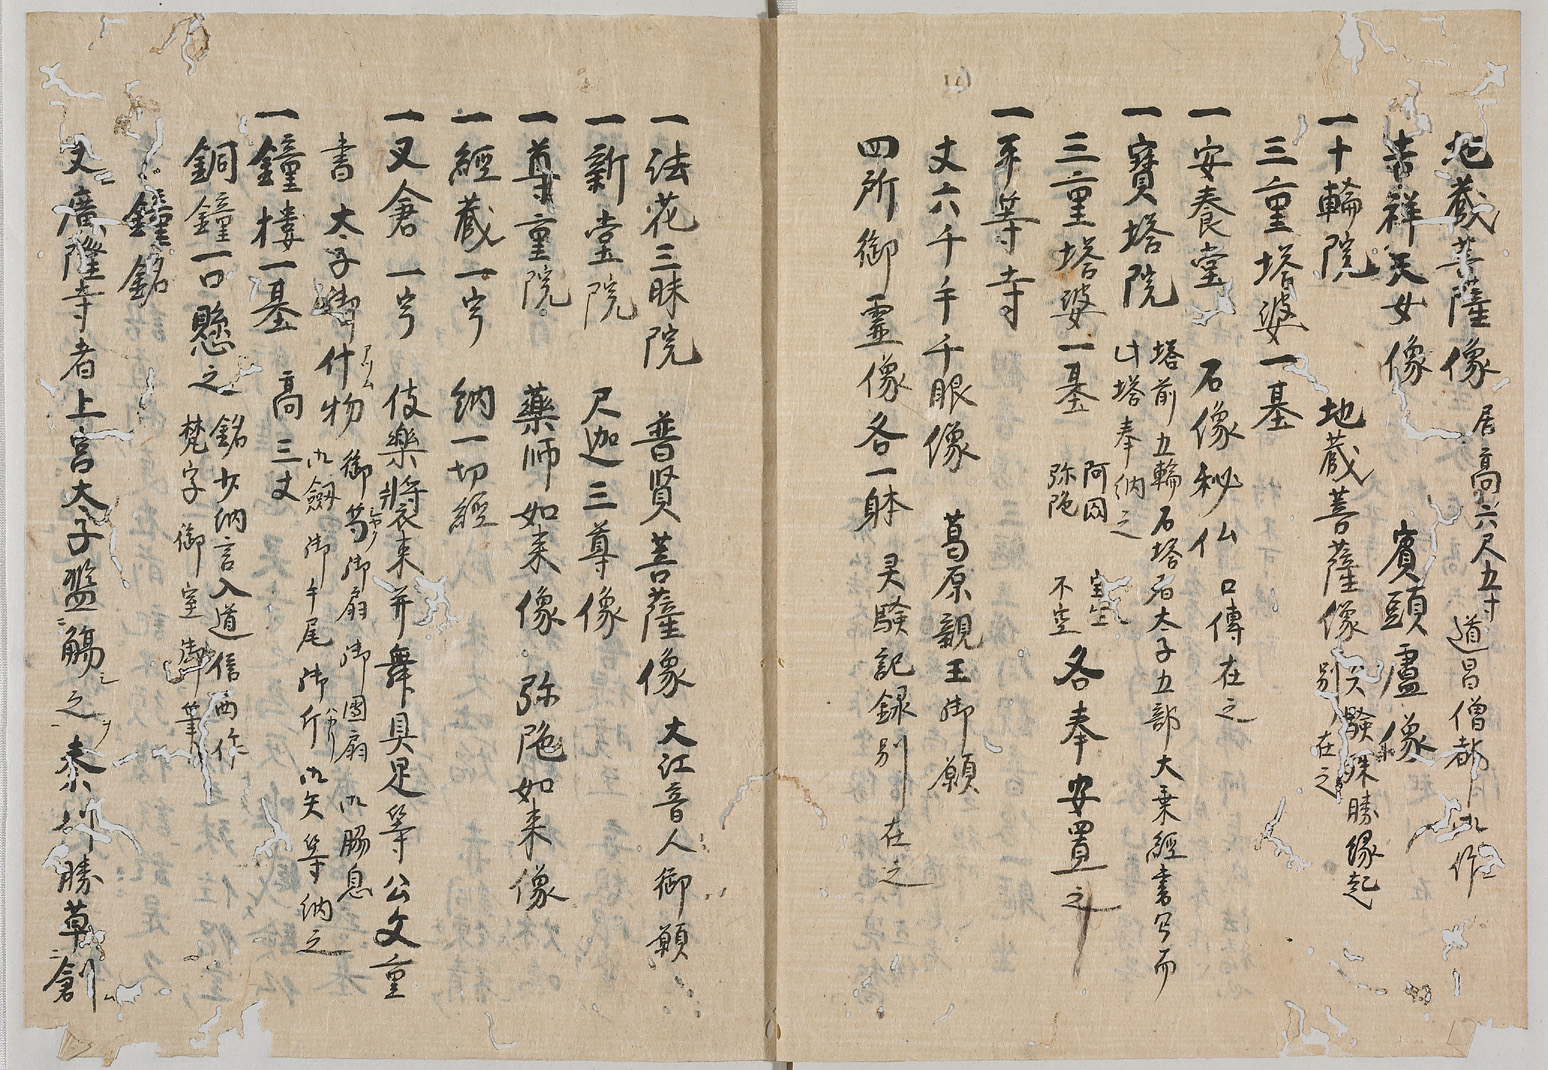 地蔵菩薩像 居高六尺五寸 道昌僧都御作
吉祥天女像 賓頭盧像
一十輪院 地蔵菩薩像 灵験殊勝縁起
別ノ在之
三重塔婆一基
一安養堂 石像秘仏 口傳在之
一寶塔院 塔前五輪石塔者太子五部大乗經書写而
此塔奉納之
三重塔婆一基 阿閦 宝生
弥陀 不空 各奉安置之
一平等寺
丈六千手千眼像 葛原親王御願
四所御霊像各一躰 灵験記録別在之
一法花三昧院 普賢菩薩像 大江音人御願
一新堂院 尺迦三尊像
一尊重院 薬師如来像 弥陀如来像
一經蔵一宇 納一切經
一叉倉一宇 伎樂装束并舞具足等公文重
書 太子御什物 御笏御扇御團扇御脇息
御劔御牛尾御斤御矢等納之
一鐘楼一基 高三丈
銅鐘一口懸之 銘少納言入道信西作
梵字御室御筆
鐘銘
夫廣隆寺者上宮太子濫觴之秦川勝草創